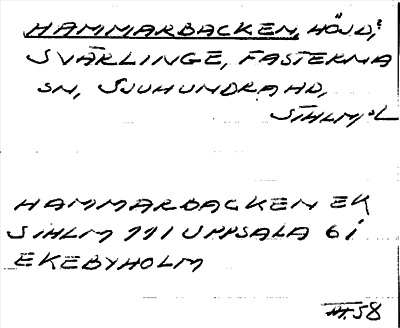 HAMMARBACKEN, HÖJD,
SVÄRLINGE, FASTERNA
SN, SJUHUNDRA HD,
STHLM, L
HAMMARBACKEN EK
STHLM 111 UPPSALA 6 i
EKEBYHOLM
58